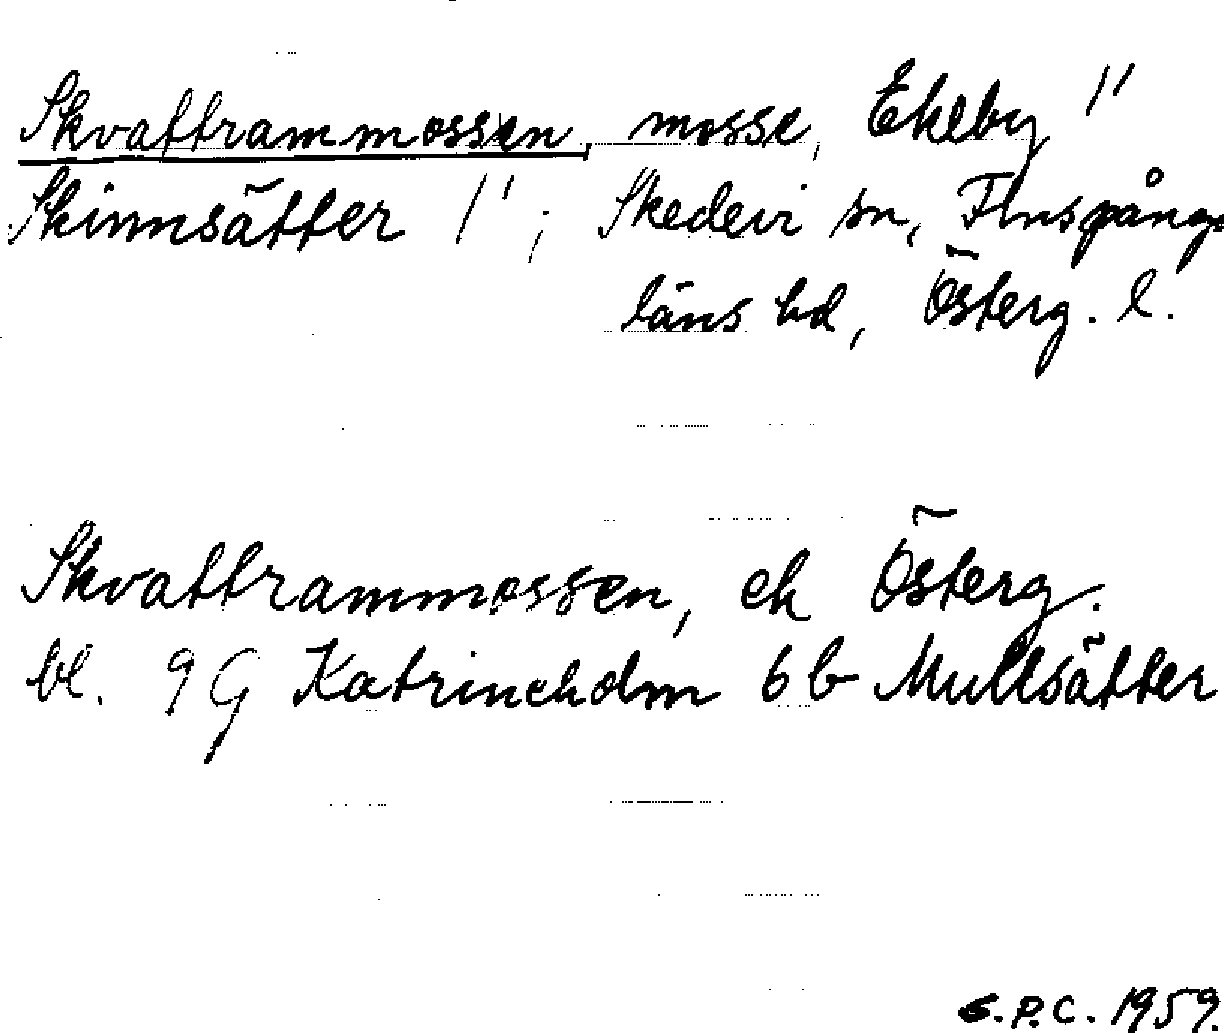 Skvattrammossen, mosse, Ekeby 1/1
Skinnsätter 1/1; Skedevi sn, Finspångs
läns hd, Österg. l.
Skvattrammossen, ek Österg.
bl. 9G Katrineholm 6b Mullsätter
S.P.C. 1959